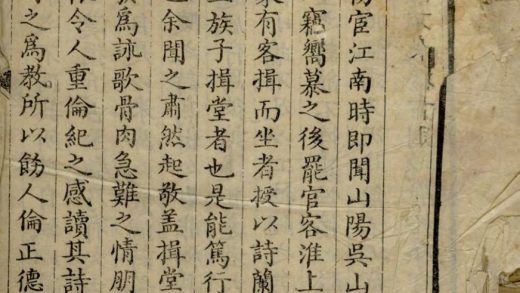 陽宦江南時即聞山陽吳山
竊嚮慕之後罷官客淮上
家有客揖而坐者授以詩蘭
族子揖堂者也是能篤行
之余聞之肅然起敬蓋揖堂
為詠歌骨肉急難之情朋
令人重倫紀之感讀其詩
之為教所以飭人倫正德